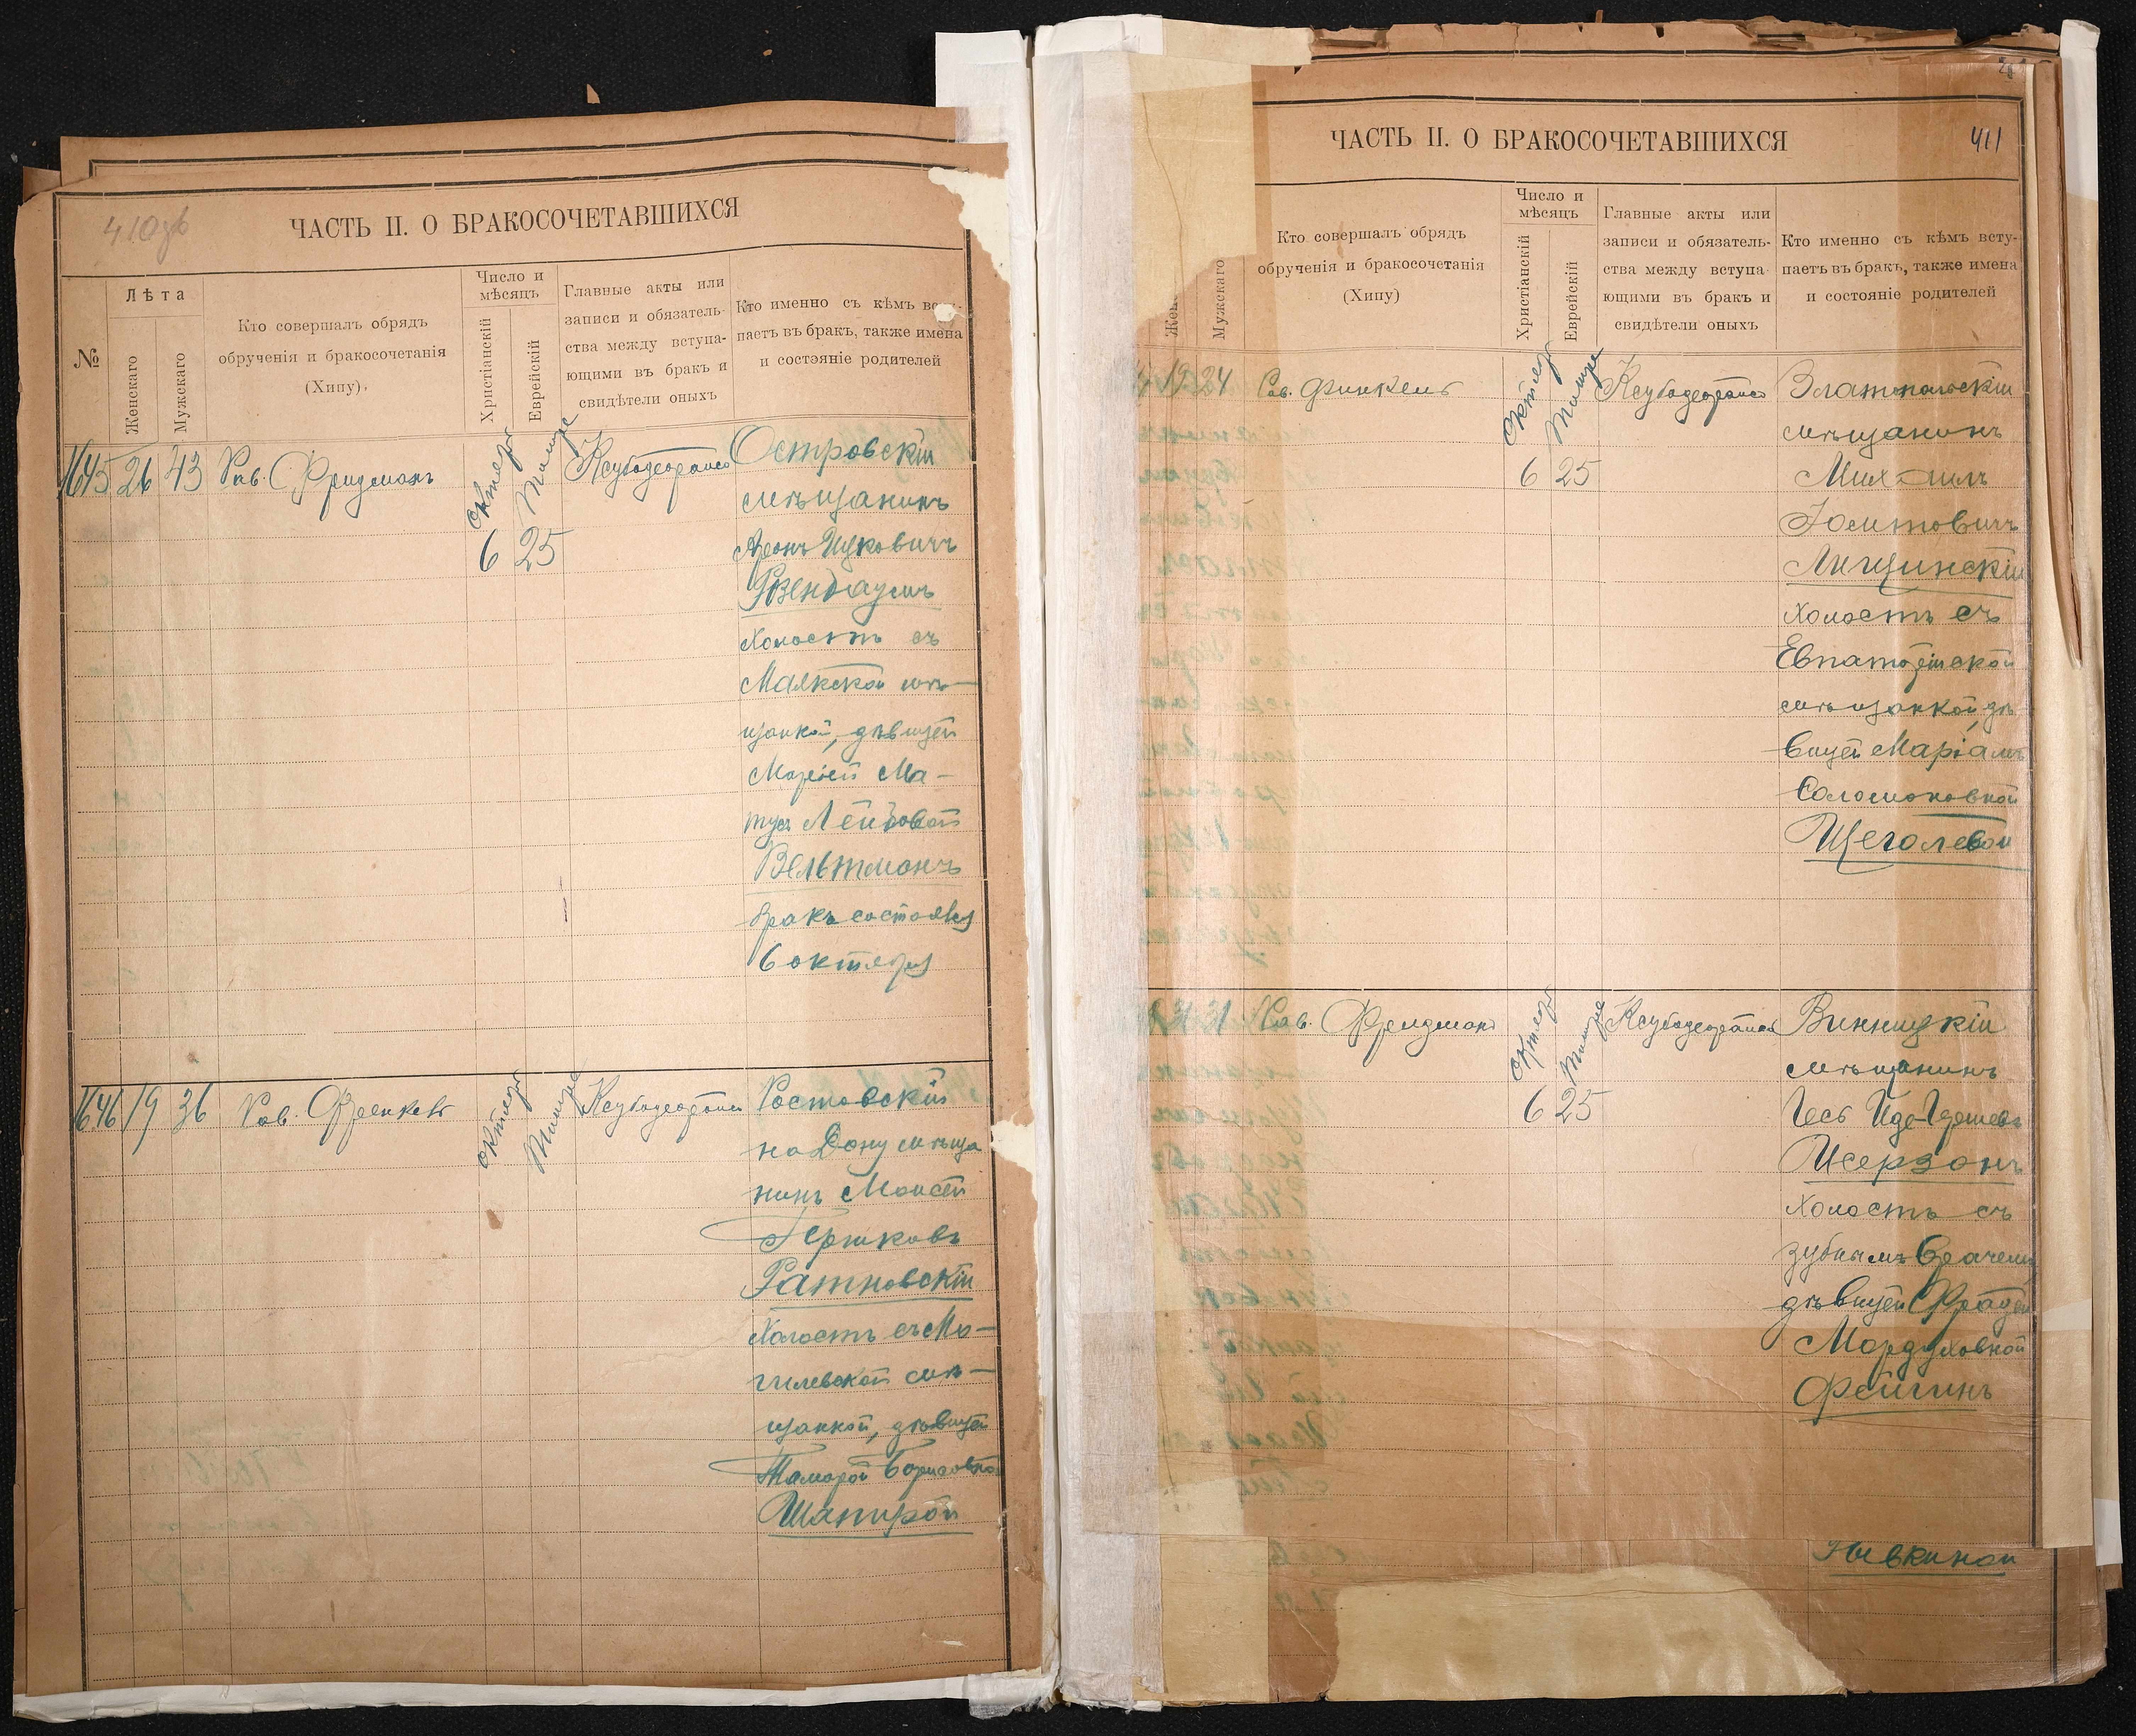 410об
ЧАСТЬ II. О БРАКОСОЧЕТАВШИХСЯ
№
Лѣта
Женскаго
Мужскаго
Кто совершалъ обрядъ
обрученія и бракосочетанія
(Хипу).
Число и
мѣсяцъ
Христіанскій
Еврейскій
Главные акты или
записи и обязатель-
ства между вступа-
ющими въ бракъ и
свидѣтели оныхъ
Кто именно съ кѣмъ всту-
паетъ въ бракъ, также имена
и состояніе родителей
1645 26 43 Рав. Фридманъ
октябр Тишре
6 25
Островскій
мѣщанинъ
Аронъ Ицковичъ
Розенбаумъ
холостъ съ
Маякской мѣ-
щанкой, дѣвицей
Маріей Ма-
Лейбовой
Вельтманъ
бракъ состоялся
6 октября
1646 19 36 Рав. Френкель
октябр Тишре
Ростовскій
на Дону мѣща
нинъ Моисей
Гершковъ
Ратновскій
холостъ съ Мо-
гилевской мѣ-
щанкой, дѣвицей
Тамарой Борисовной
Шапирой
411
ЧАСТЬ II. О БРАКОСОЧЕТАВШИХСЯ
Жен
Мужскаго
Кто совершалъ обрядъ
обрученія и бракосочетанія
(Хипу)
Число и
мѣсяцъ
Христіанскій
Еврейскій
Главные акты или
записи и обязатель-
ства между вступа
ющими въ бракъ и
свидѣтели оныхъ
Кто именно съ кѣмъ всту-
паетъ въ бракъ, также имена
и состояніе родителей
24 Рав. Финкель
октябр Тишре
6 25
Златопольскій
мѣщанинъ
Михаилъ
Лищинскій
холостъ съ
Евпаторійской
мѣщанкой, дѣ
вицей Маріамъ
Соломоновной
Щеголевой
31 Рав. Фридманъ
октябр Тишре
6 25
Винницкій
мѣщанинъ
Исерзонъ
холостъ съ
зубнымъ врачемъ
дѣвицей
Мордуховной
Фейгинъ
Пивкиной